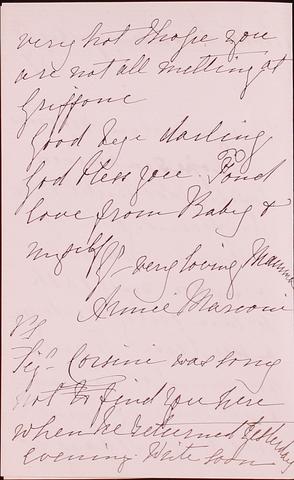 very hot I hope you
are not all melting at
Griffone
Good bye darling
God bless you. Fond
love from Baby &
myself yr very loving Mamma
Annie Marconi
PS
Sigr Corsini was sorry
not to find you here
when he returned yesterday
evening. Write soon